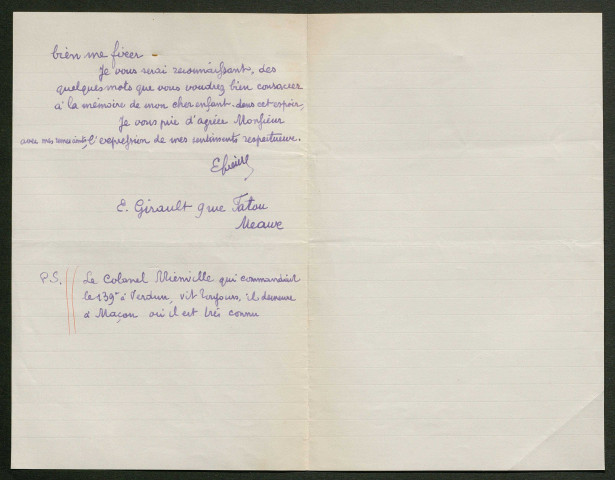 bien me fixer -
Je vous serai reconnaissant, des
quelques mots que vous voudrez bien consacrer
à la mémoire de mon cher enfant. dans cet espoir,
Je vous prie d'agréer Monsieur
avec mes remerciements, l'expression de mes sentiments respectueux.
E. Girault 9 rue Tatou
Meaux
P.S. Le Colonel Mienville qui commandait
le 139e à Verdun, vit toujours, il demeure
à Maçon où il est très connu